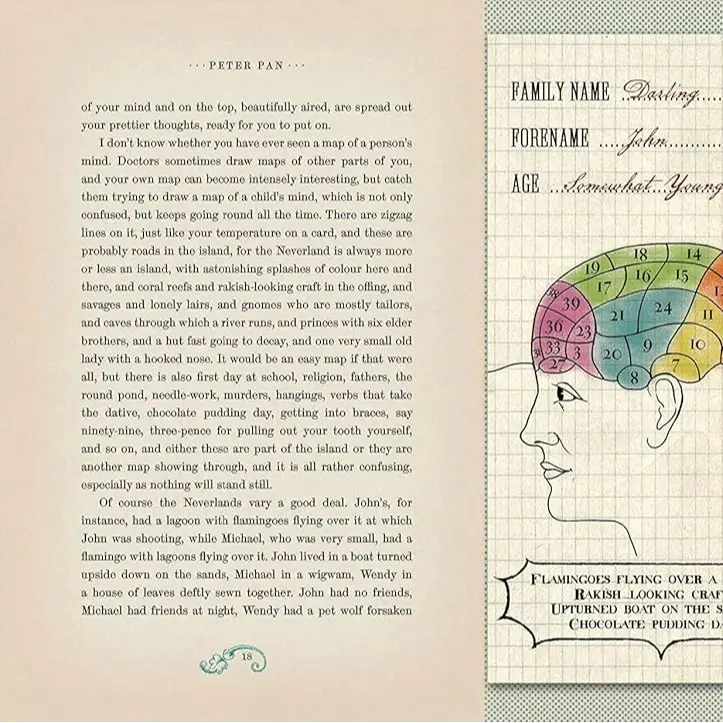 ··· PETER PAN ···
of your mind and on the top, beautifully aired, are spread out
your prettier thoughts, ready for you to put on.
I don't know whether you have ever seen a map of a person's
mind. Doctors sometimes draw maps of other parts of you,
and your own map can become intensely interesting, but catch
them trying to draw a map of a child's mind, which is not only
confused, but keeps going round all the time. There are zigzag
lines on it, just like your temperature on a card, and these are
probably roads in the island, for the Neverland is always more
or less an island, with astonishing splashes of colour here and
there, and coral reefs and rakish-looking craft in the offing, and
savages and lonely lairs, and gnomes who are mostly tailors,
and caves through which a river runs, and princes with six elder
brothers, and a hut fast going to decay, and one very small old
lady with a hooked nose. It would be an easy map if that were
all, but there is also first day at school, religion, fathers, the
round pond, needle-work, murders, hangings, verbs that take
the dative, chocolate pudding day, getting into braces, say
ninety-nine, three-pence for pulling out your tooth yourself,
and so on, and either these are part of the island or they are
another map showing through, and it is all rather confusing,
especially as nothing will stand still.
Of course the Neverlands vary a good deal. John's, for
instance, had a lagoon with flamingoes flying over it at which
John was shooting, while Michael, who was very small, had a
flamingo with lagoons flying over it. John lived in a boat turned
upside down on the sands, Michael in a wigwam, Wendy in
a house of leaves deftly sewn together. John had no friends,
Michael had friends at night, Wendy had a pet wolf forsaken
18
FAMILY NAME Darling
FORENAME John
AGE Somewhat Young
19 18 14
17 16 15
38 39 21 24 11
36 23
33 3 20 9 10
27 8 7
FLAMINGOES FLYING OVER A
RAKISH LOOKING CRAF
UPTURNED BOAT ON THE S
CHOCOLATE PUDDING D